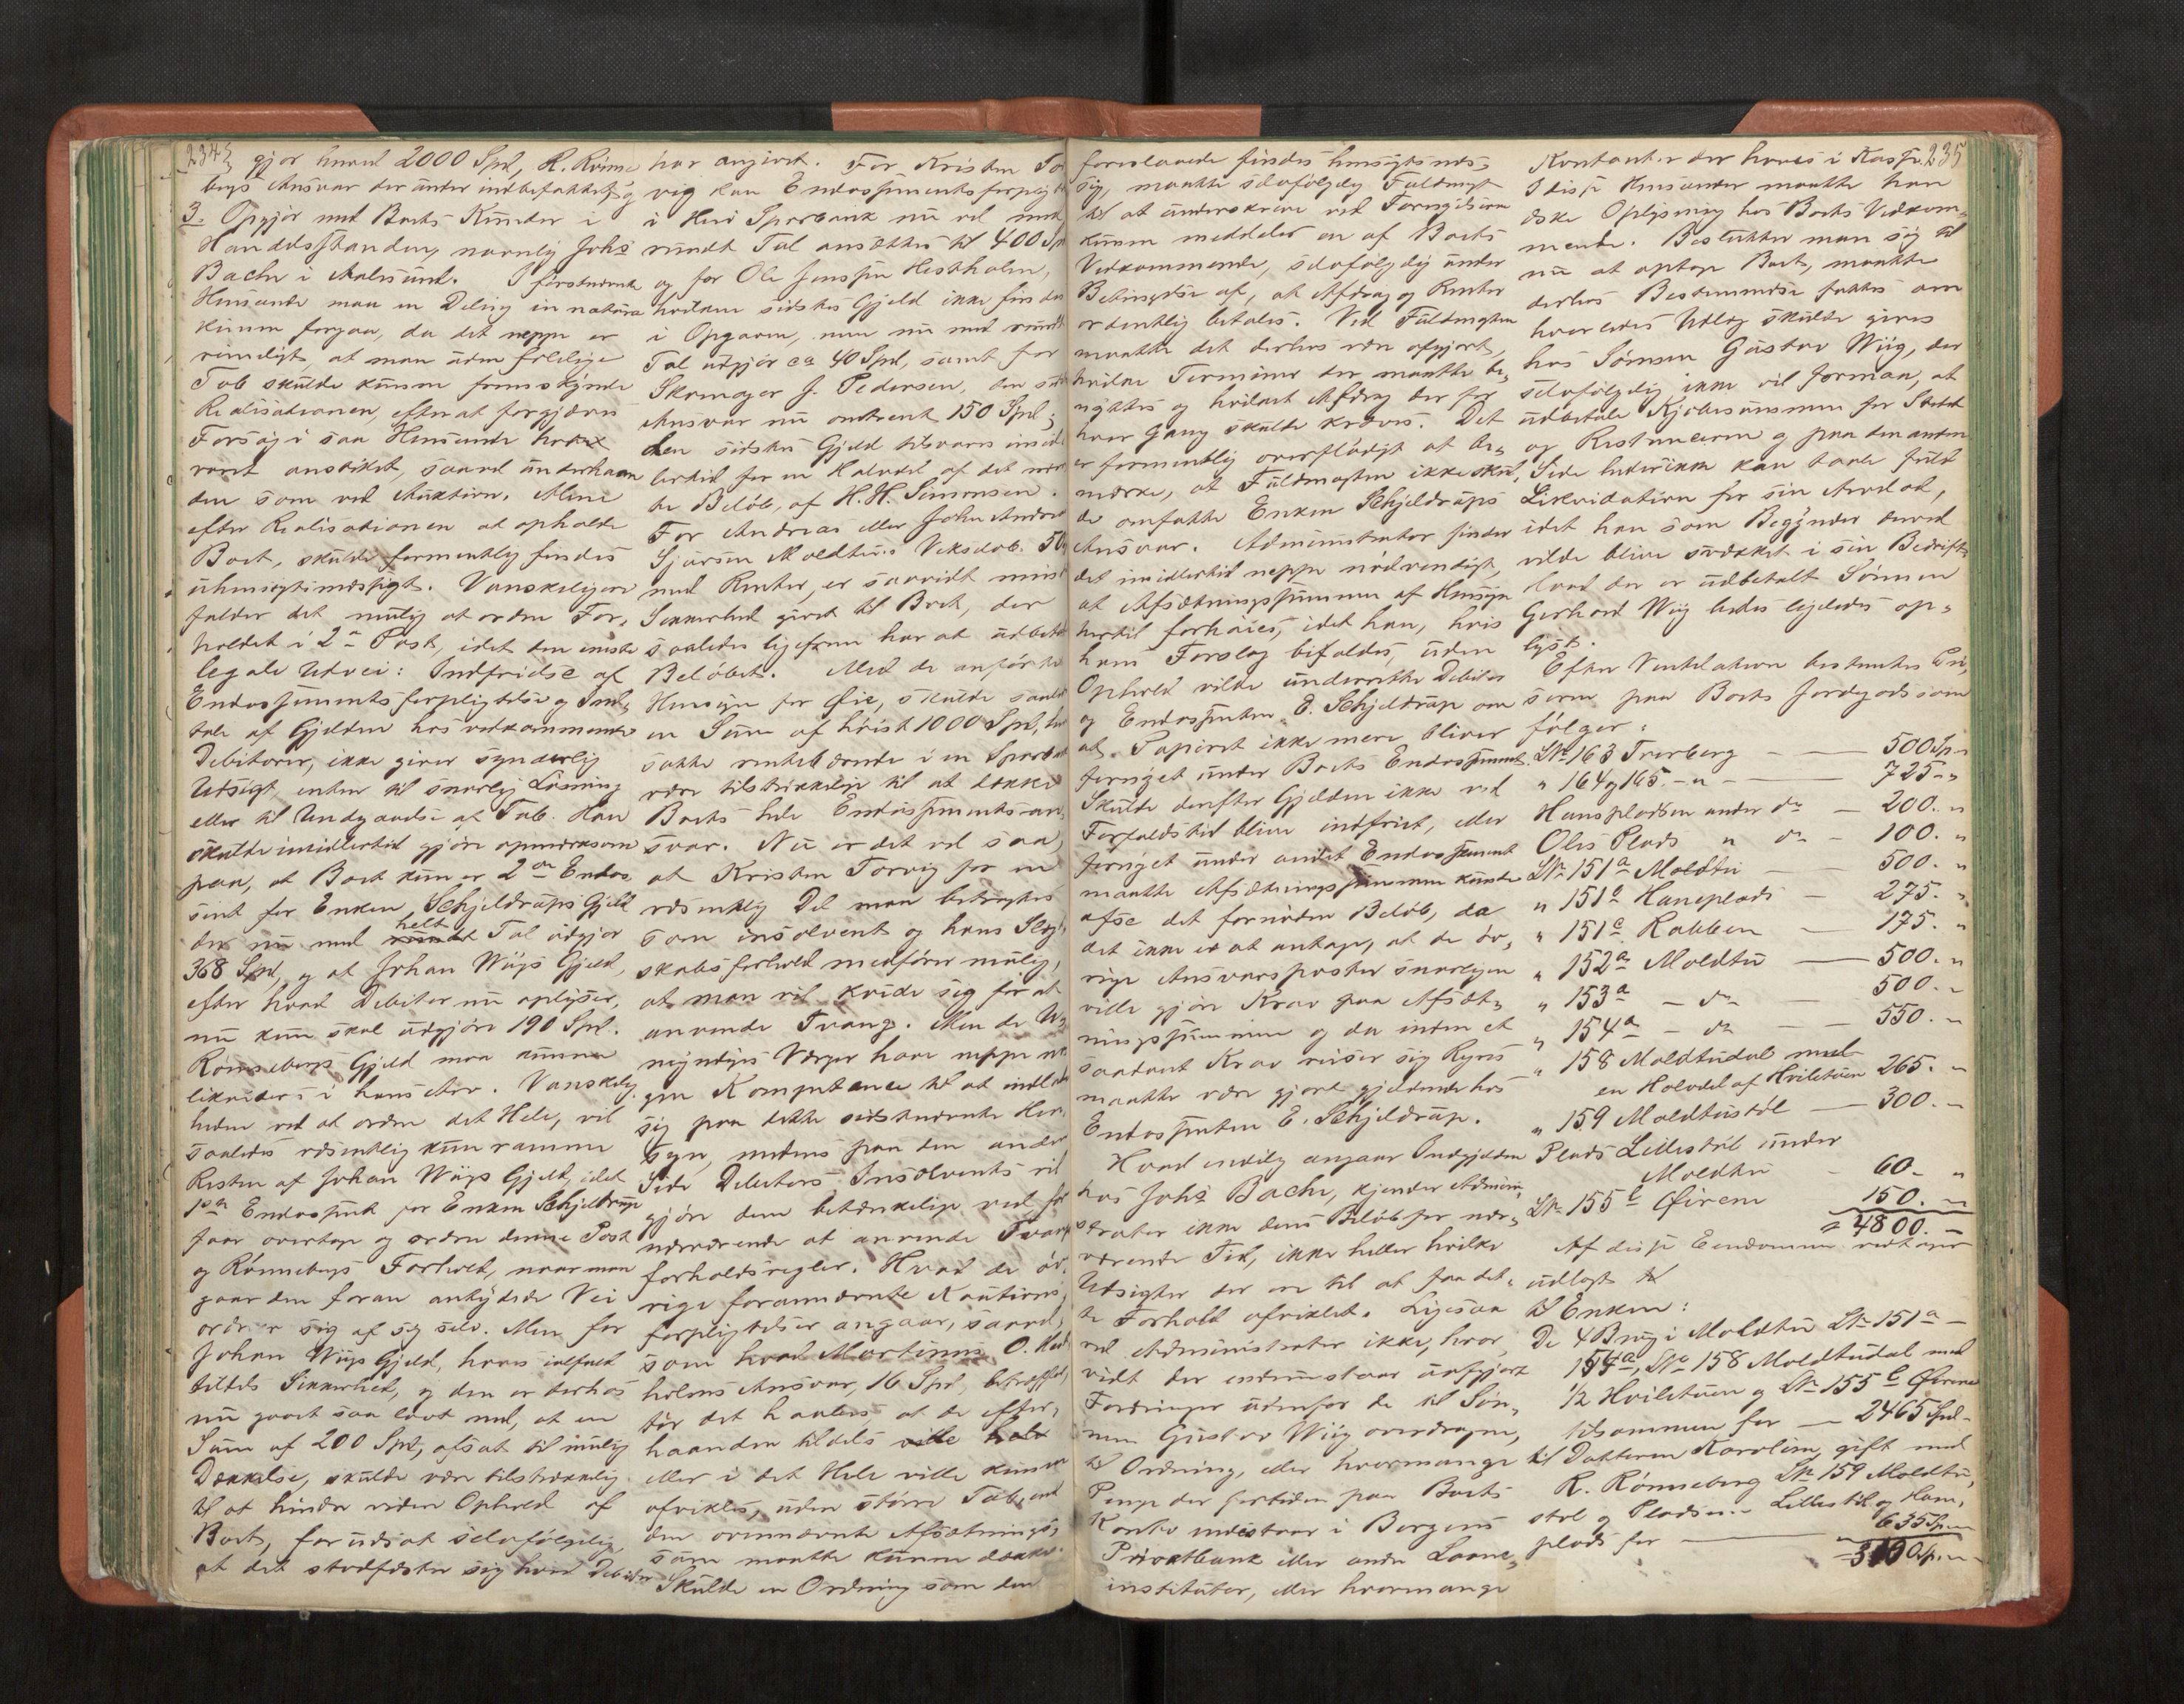 234
gjør hvad 2000 Spd, R. Rønne
bergs Ansvar der under indbefattet og
3. Opgjør med Boets Kunder i
Handelsstanden, navnlig Johs
Bache i Aalesund. I førstnævnte
Henseende maa en Deling in natura
kunne foregaa, da det neppe er
rimeligt, at man uden følelige
Tab skulde kunne fremskynde
Realisationen, efter at forgjæves
Forsøg i saa Henseende har
været anstillet, saavel underhaan
den som ved Auktion. Alene
efter Realisationen at opholde
Boet, skulde formentlig findes
uhensigtsmæssigt. Vanskeligere
falder det mulig at ordne For-
holdet i 2den Post, idet den eneste
legale Udvei: Indfrielse af
Endossementsforpligtelse og Ind-
tale af Gjælden hos vedkommende
Debitorer, ikke giver synderlig
Udsigt enten til snarlig Løsning
eller til Undgaaelse af Tab. Han
skulde imidlertid gjøre opmærksom
paa, at Boet kun er 2den Endos
sent for Enken Schjeldrups Gjeld
der nu med helt Tal udgjør
368 Spd, og at Johan Wiigs Gjeld,
efter hvad Debitor nu oplyser,
nu kun skal udgjøre 190 Spd.
Rønnebergs Gjeld maa kunne
likvideres i hans Arv. Vanskelig
heden ved at ordne det Hele, vil
saaledes væsentlig kun ramme
Resten af Johan Wiigs Gjeld, idet
1ste Endossent for Enken Schjeldrup
faar overtage og ordne denne Post
og Rønnebergs Forhold, naar man
gaar den foran antydede Vei
ordner sig af sig selv. Men for
Johan Wiigs Gjeld, haves ialfald
tildels Sikkerhed, og den er derhos
nu gaaet saa lavt ned, at en
Sum af 200 Spd, afsat til mulig
Dækkelse, skulde være tilstrækkelig
til at hindre videre Ophold af
Boet, forudsat selvfølgelig
at det stadfæster sig hvad Debitor
har angivet. For Kristen Tor
vig kan Endossementsforpligt
i Herø Sparbank nu vel med
rundt Tal ansættes til 400 Spd
og for Ole Jensen Hestholm,
hvilken sidstes Gjeld ikke findes
i Opgaven, men nu med rundt
Tal udgjør ca 40 Spd, samt for
Skomager J. Pedersen, den sid
Ansvar nu omtrent 150 Spd;
den sidstes Gjeld tilsvares imid
lertid for en Halvdel af det nævn
te Beløb, af H. H. Simonsen.
For Andreas eller John Andre
Sjursen Moldtus Vekselob. 50
med Renter, er saavidt mins
Sikkerhed givet til Boet, der
saaledes ligefrem har at udbeta
Beløbet. Med de anførte
Hensyn for Øie, skulde saale
en Sum af høist 1000 Spd, hen
satte rentebærende i en Sparbank
være tilstrækkelige til at dække
Boets hele Endossementsan-
svar. Nu er det vel saa,
at Kristen Torvig for en
væsentlig Del maa betragtes
som insolvent og hans Slægt-
skabsforhold medfører mulig,
at man vil kvide sig for at
anvende Tvang. Men de U-
myndiges Værger have neppe no
gen Kompetence til at indlade
sig paa dette sidstnævnte Hen-
syn, medens paa den anden
Side Debitors Insolvents vil
gjøre dem betænkelige ved for
nærværende at anvende Tvangs
forholdsregler. Hvad de øv-
rige forannævnte Kautions-
forpligtelser angaar, saavel
som hvad Martinus O. Hest
holms Ansvar, 16 Spd, betræffer,
tør det haabes at de efter-
haanden tildels
eller i det Hele ville kunne
afvikles, uden større Tab, end
den ovennævnte Afsætnings-
sum maatte kunne dække.
Skulde en Ordning som den
235
foreslaaede findes hensigtsmæs-
sig, maatte selvfølgelig Fuldmagt
til at underskrive ved Fornyelserne
kunne meddeles en af Boets
Vedkommende, selvfølgelig under
Betingelse af, at Afdrag og Renter
ordentlig betales. Ved Fuldmagten
maatte det derhos være afgjort,
hvilke Terminer der maatte be-
nyttes og hvilket Afdrag der for
hver Gang skulde kræves. Det
er formentlig overflødigt at be-
mærke, at Fuldmagten ikke skul-
de omfatte Enken Schjeldrups
Ansvar. Administrator finder
det imidlertid neppe nødvendigt,
at Afsætningssummen af Hensyn
hertil forhøies, idet han, hvis
hans Forslag bifaldes, uden
Ophold vilde underrette Debitor
og Endossenten E. Schjeldrup om
at Papiret ikke mere bliver
fornyet under Boets Endossement.
Skulde derefter Gjælden ikke ved
Forfaldstid blive indfriet, eller
fornyet under andet Endossement
maatte Afsætningssummen kunde
afse det fornødne Beløb, da
det ikke er at antage, at de øv-
rige Ansvarsposter snarligen
ville gjøre Krav paa Afsæt-
ningssummen og da inden et
saadant Krav reiser sig Regres
maatte være gjort gjeldende hos
Endossenten E. Schjeldrup.
Hvad endelig angaar Indgjelden
hos Johs Bache, kjender Admini-
strator ikke dens Beløb for nær-
værende Tid, ikke heller hvilke
Udsigter der er til at faa det-
te Forhold afviklet. Ligesaa
ved Administrator ikke, hvor
vidt der endnu staar uafgjort
Fordringer udenfor de til Søn-
nen Gustav Wiig overdragne,
til Ordning, eller hvormange
Penge der fortiden paa Boets
Konto indestaar i Bergens
Privatbank eller andre Laane-
instituter, eller hvormange
Kontanter der haves i Kasse.
I disse Henseender maatte han
ønske Oplysning hos Boets Vedkom-
mende. Beslutter man sig til
nu at optage Boet, maatte
derhos Bestemmelse fattes om
hvorledes Udlæg skulde gives
hos Sønnen Gustav Wiig, der
selvfølgelig ikke vil formaa, at
udbetale Kjøbesummen for Stedet
og Restancerne og paa den anden
Side heller ikke kan taale fuld
Likvidation for sin Arvelod,
idet han som Begynder derved
vilde blive svækket i sin Bedrift.
Hvad der er udbetalt Sønnen
Gerhard Wiig bedes ligeledes op-
lyst.
Efter Ventilation bestemtes Pri-
serne paa Boets Jordegods som
følger:
LNo 163 Frerberg — 500 Sp. "
" 164 og 165 - " — 725 - "
Hansplassen under do — 200. "
Olis Plads " do — 100. "
LNo 151a Moldtu — 500. "
" 151b Haneplads — 275. "
" 151c Rabben — 175. "
" 152a Moldtu — 500. "
" 153a - do — 500. "
" 154a - do — 550. "
" 158 Moldtudal med
en Halvdel af Hviletuen 265. "
" 159 Moldtustøl — 300. "
Plads Lillestøl under
Moldtu - 60 - "
LNo 155b Øirene 150. "
= 4800. -
Af disse Eiendomme vedtages
udlagt til
til Enken:
De 4 Brug i Moldtu LNo 151a -
154a, LNo 158 Moldtudal med
1/2 Hviletuen og LNo 155b Øirene
tilsammen for — 2465 Spd -
til Datteren Karoline, gift med
R. Rønneberg LNo 159 Moldtu-
støl og Pladsene Lillestøl og Hane-
plads for — 635 Sp. "